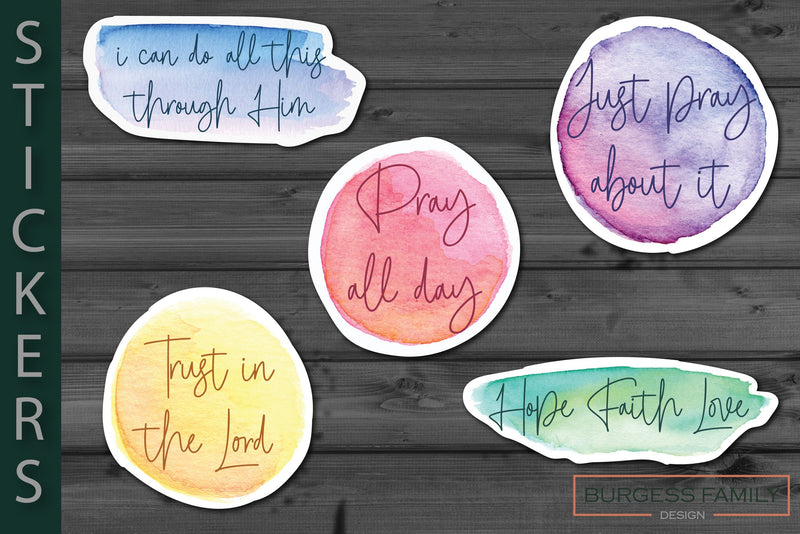 STICKERS
i can do all this
through Him
Just pray
about it
Pray
all day
Trust in
the Lord
Hope Faith Love
BURGESS FAMILY
DESIGN